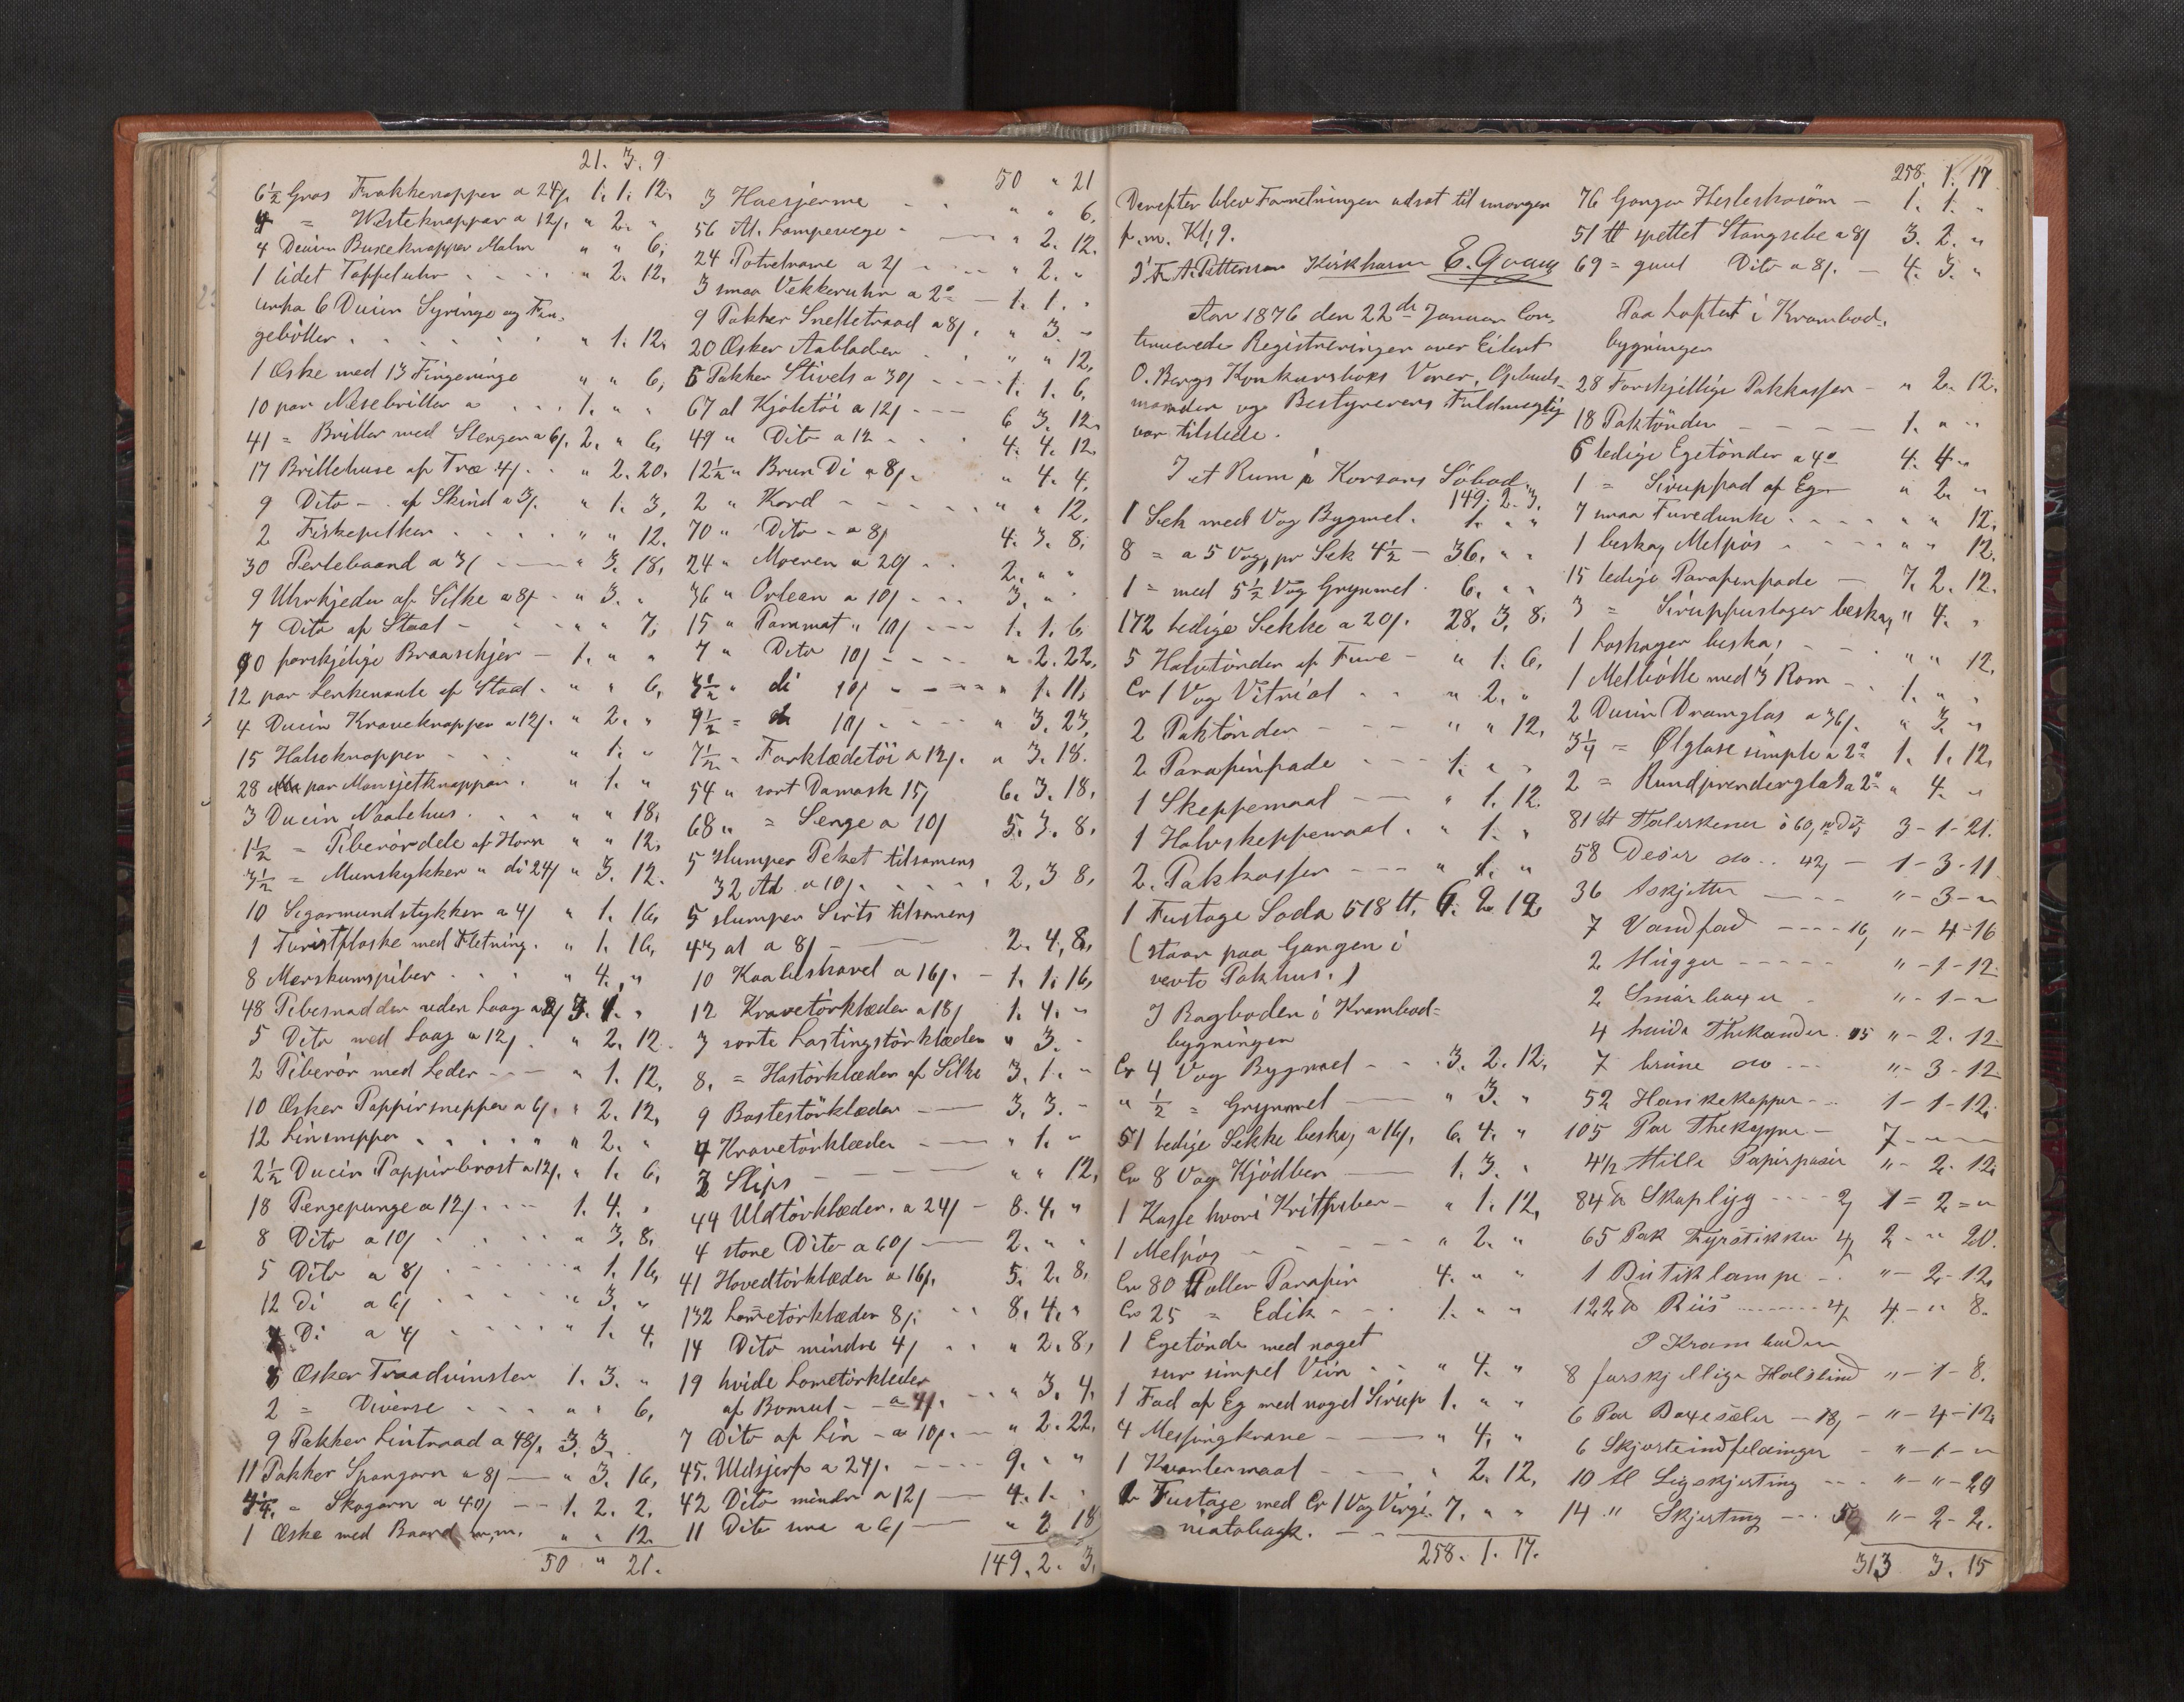 21. 3. 9
6½ Gros Frakkenapper a 24/. 1. 1. 12.
4 = Westeknapper a 12/. " 2. "
4 Ducin Buxeknapper Malm " " 6.
1 lidet Taffeluhr . . . . " 2. 12.
6 Ducin Syringe og Fin-
gebøller . . . . . " 1. 12.
1 Æske med 13 Fingeringe " " 6.
10 par Næsebriller a . . . 1. " "
41 = Briller med Stenger a 6/. 2. " 6.
17 Brillehuse af Træ 4/. . " 2. 20.
9 Dito - af Skind a 3/. " 1. 3.
2 Fiskepilker . . . . " " 12.
30 Perlebaand a 3/ — " 3. 18.
9 Uhrkjeder af Silke a 8/ - " 3. "
7 Dito af Staal - . . " " 7.
90 forskjelige Braaschjer — 1. " "
12 par Lenkenaale af Staal . " " 6.
4 Ducin Kraveknapper a 12/. " 2. "
15 Halseknapper . . . " 1. "
28 par Mansjetknapper . " 1. "
3 Ducin Naalehus . . . " " 18.
1½ = Piberørdele af Horn " " 12.
3½ = Munstykker " di 24/ " 3. 12.
10 Sigarmundstykker a 4/ " 1. 16.
1 Turistflaske med Fletning . " 1. 16.
8 Merskumspiber . . . " 4. "
48 Pibesnadder uden Laag a 8/ 3. 1. "
5 Dito med Laag a 12/ . " 2. 12.
2 Piberør med Leder - — " 1. 12.
10 Æsker Pappirsnipper a 6/. " 2. 12.
12 Linsnipper . . . . " 2. "
2½ Ducin Pappirbrøst a 12/. " 1. 6.
18 Pengepunge a 12/ . . - 1. 4. "
8 Dito a 10/ . . . . " 3. 8.
5 Dito a 8/ . . . . " 1. 16.
12 Di a 6/ . . . . " 3. "
Di a 4/ . . . . " 1. 4.
Æsker Traadvinsler 1. 3. "
2 = Diverse . . . . " " 6.
9 Pakker Lintraad a 48/. 3. 3.
11 Pakker Spangarn a 8/ — " 3. 16.
4¼ = Skogarn a 40/ - - 1. 2. 2.
1 Æske med Baand m.m. " " 12.
50 " 21.
50 " 21
3 Huesjerme . . " " 6.
56 Al. Lampevege - — " 2. 12.
24 a 2/ - . . . " 2. "
3 smaa Vekkeruhr a 2° — 1. 1. "
9 Pakker Snelletraad a 8/. " 3. "
20 Æsker . . " " 12.
5 Pakker Stivels a 30/ - - - 1. 1. 6.
67 al Kjoletöi a 12/ - - - 6 3. 12.
49 " Dito a 12 . . . 4. 4. 12.
12½ " Brun Di a 8/. " 4. 4.
2 " Kord - - - - " " 12.
70 " Dito - a 8/ 4. 3. 8.
24 " Moeren a 20/ . . 2. " "
36 " Orlean a 10/ - . . 3. " "
15 " Paramat " 10/ - - - 1. 1. 6.
7 " Dito 10/ - - - - " 2. 22.
3½ " di 10/ - - - - " 1. 11.
9½ = di 10/ - - - - " 3. 23.
7½ = Forklædetöi a 12/. " 3. 18.
54 " sort Damask 15/ 6. 3. 18.
68 " = Senge a 10/ 5. 3. 8.
5 Slumper Peket tilsamens
32 Al a 10/. . . . . 2. 3 8.
5 slumper Sirts tilsamens
43 al a 8/ - — 2. 4. 8.
10 Kaaleskravel a 16/. - 1. 1. 16.
12 Kravetörklæder a 18/ 1. 4. "
3 sorte Lastingstörklæder " 3. -
8. = Halstörklæder af Silke 3. 1. "
9 Bastestörklæder — 3. 3. -
4 Kravetörklæder - — " 1. "
3 Slips - — " " 12.
44 Uldtörklæder. a 24/ - 8. 4. "
4 store Dito a 60/ — 2. " "
41 Hovedtörklæder a 16/. 5. 2. 8.
132 Lometörklæder 8/. . . 8. 4. "
14 Dito mindre 4/ . . " 2. 8.
19 hvide Lometörklæder
af Bomul - a 4/. . . " 3. 4.
7 Dito af Lin - a 10/. — " 2. 22.
45. Uldsjerf a 24/. - - - - 9. " "
42 Dito mindre a 12/ — 4. 1. "
11 Dito smaa a 6/ — " 2 18
149. 2. 3.
Derefter blev Forretningen udsat til imorgen
f.m. Kl. 9.
J. F. A. Pettersen Kirkhorn E. Qvam
Aar 1876 den 22de Januar Con-
tinuerede Registreringen over Eilert
O. Bergs Konkursboes Varer, Opbuds-
manden og Bestyrerens Fuldmegtig
var tilstede.
I et Rum i Korsans Söbod.
149. 2. 3.
1 Sæk med Vog Bygmel. 1. " "
8 = a 5 Vog, pr Sæk 4½ — 36. " "
1 = med 5½ Vog Grynmel . 6. " "
172 ledige Sekke a 20/. 28. 3. 8.
5 Halvtönder af Furu — " 1. 6.
Cr 1 Vog Vitriol . . " 2. "
2 Paktönder - - - " " 12.
2 Parafinfade - - - 1. " "
1 Skeppemaal — — " 1. 12.
1 Halvskeppemaal . " 1. "
2. Pakkasser - - - " 1. "
1 Fustage Soda 518 ℔. 6. 2. 12.
(staar paa Gangen i
vevte Pakhus.)
I Bagboden i Krambod-
bygningen
Cr 4 Vog Bygmel - . . 3. 2. 12.
" ½ = Grynmel — " 3. "
51 ledige Sekke beska, a 16/. 6. 4. "
Cr 8 Vog Kjödben — 1. 3. "
1 Kasse hvori Kritpiber - " 1. 12.
1 Melpös - - - - " 2. "
Cr 80 Potter Parafin 4. " "
Cr 25 = Edik - - - 1. " "
1 Egetönde med noget
sur simpel Viin . . " 4. "
1 Fad af Eg med noget Sirup 1. " "
4 Messingkrane - — " 4. "
1 Kvartermaal - - - . 2. 12.
1 Fustage med Cr 1 Vog Virgi- 7. " "
niatobak. - -
258. 1. 17.
258. 1. 17
76 Gonger Hesteskosöm — 1. 1. "
51 ℔ spettet Stangsebe a 8/ 3. 2. "
69 = guul Dito a 8/. — 4. 3. "
Paa Loftet i Krambod-
bygningen
28 Forskjellige Pakkasser - " 2. 12.
18 Paktönder - - - — 1. " "
6 ledige Egetönder a 4° 4. 4 "
1 = Siruppad af Eg — " 2. "
7 smaa Furedunke . . . . " " 12.
1 beskag Melpös . - - - " " 12.
15 ledige Parafinfade — 7. 2. 12.
3 = Sirupfustager beska, " 4. "
1 Loskager beska, - - . " " 12.
1 Melbötte med 3 Rom - . 1. " "
2 Ducin Dramglas a 36/. " 3. "
3¼ = Ølglase simple a 2° 1. 1. 12.
2 = 2° " 4. "
81 Stk Talerkener à 60, pr Ds, 3-1-21.
58 Deser do .. 42, — 1-3-11
36 Askjetter — - - "-3-"
7 Vandfad - - - - 16, "-4-16
2 Mugger - - - - - "-1-12.
2 "-1-"
4 hvide Thekander. 15 "-2-12
7 brune do - - - "-3-12
52 Hankekopper - . 1-1-12.
105 Par Thekopper — 7-"-"
4½ Mille Papirposer "-2-12
84 ℔ Skaplyg - - - - 2, 1=2="
65 Pak Fyrstikker 4, 2-"-20.
1 Butiklampe -. "-2-12.
122 ℔ Riis ....... 4, 4-"-8.
I Kramboden
8 forskjellige Halslind "-1-8.
6 Par Baxesæler — 18, - "-4-12
6 Skjorteindfeldinger - "-1-"
10 Al Ligskjerting - - - "-"-20
14 " Skjerting - - - "-2-2.
313 3. 15